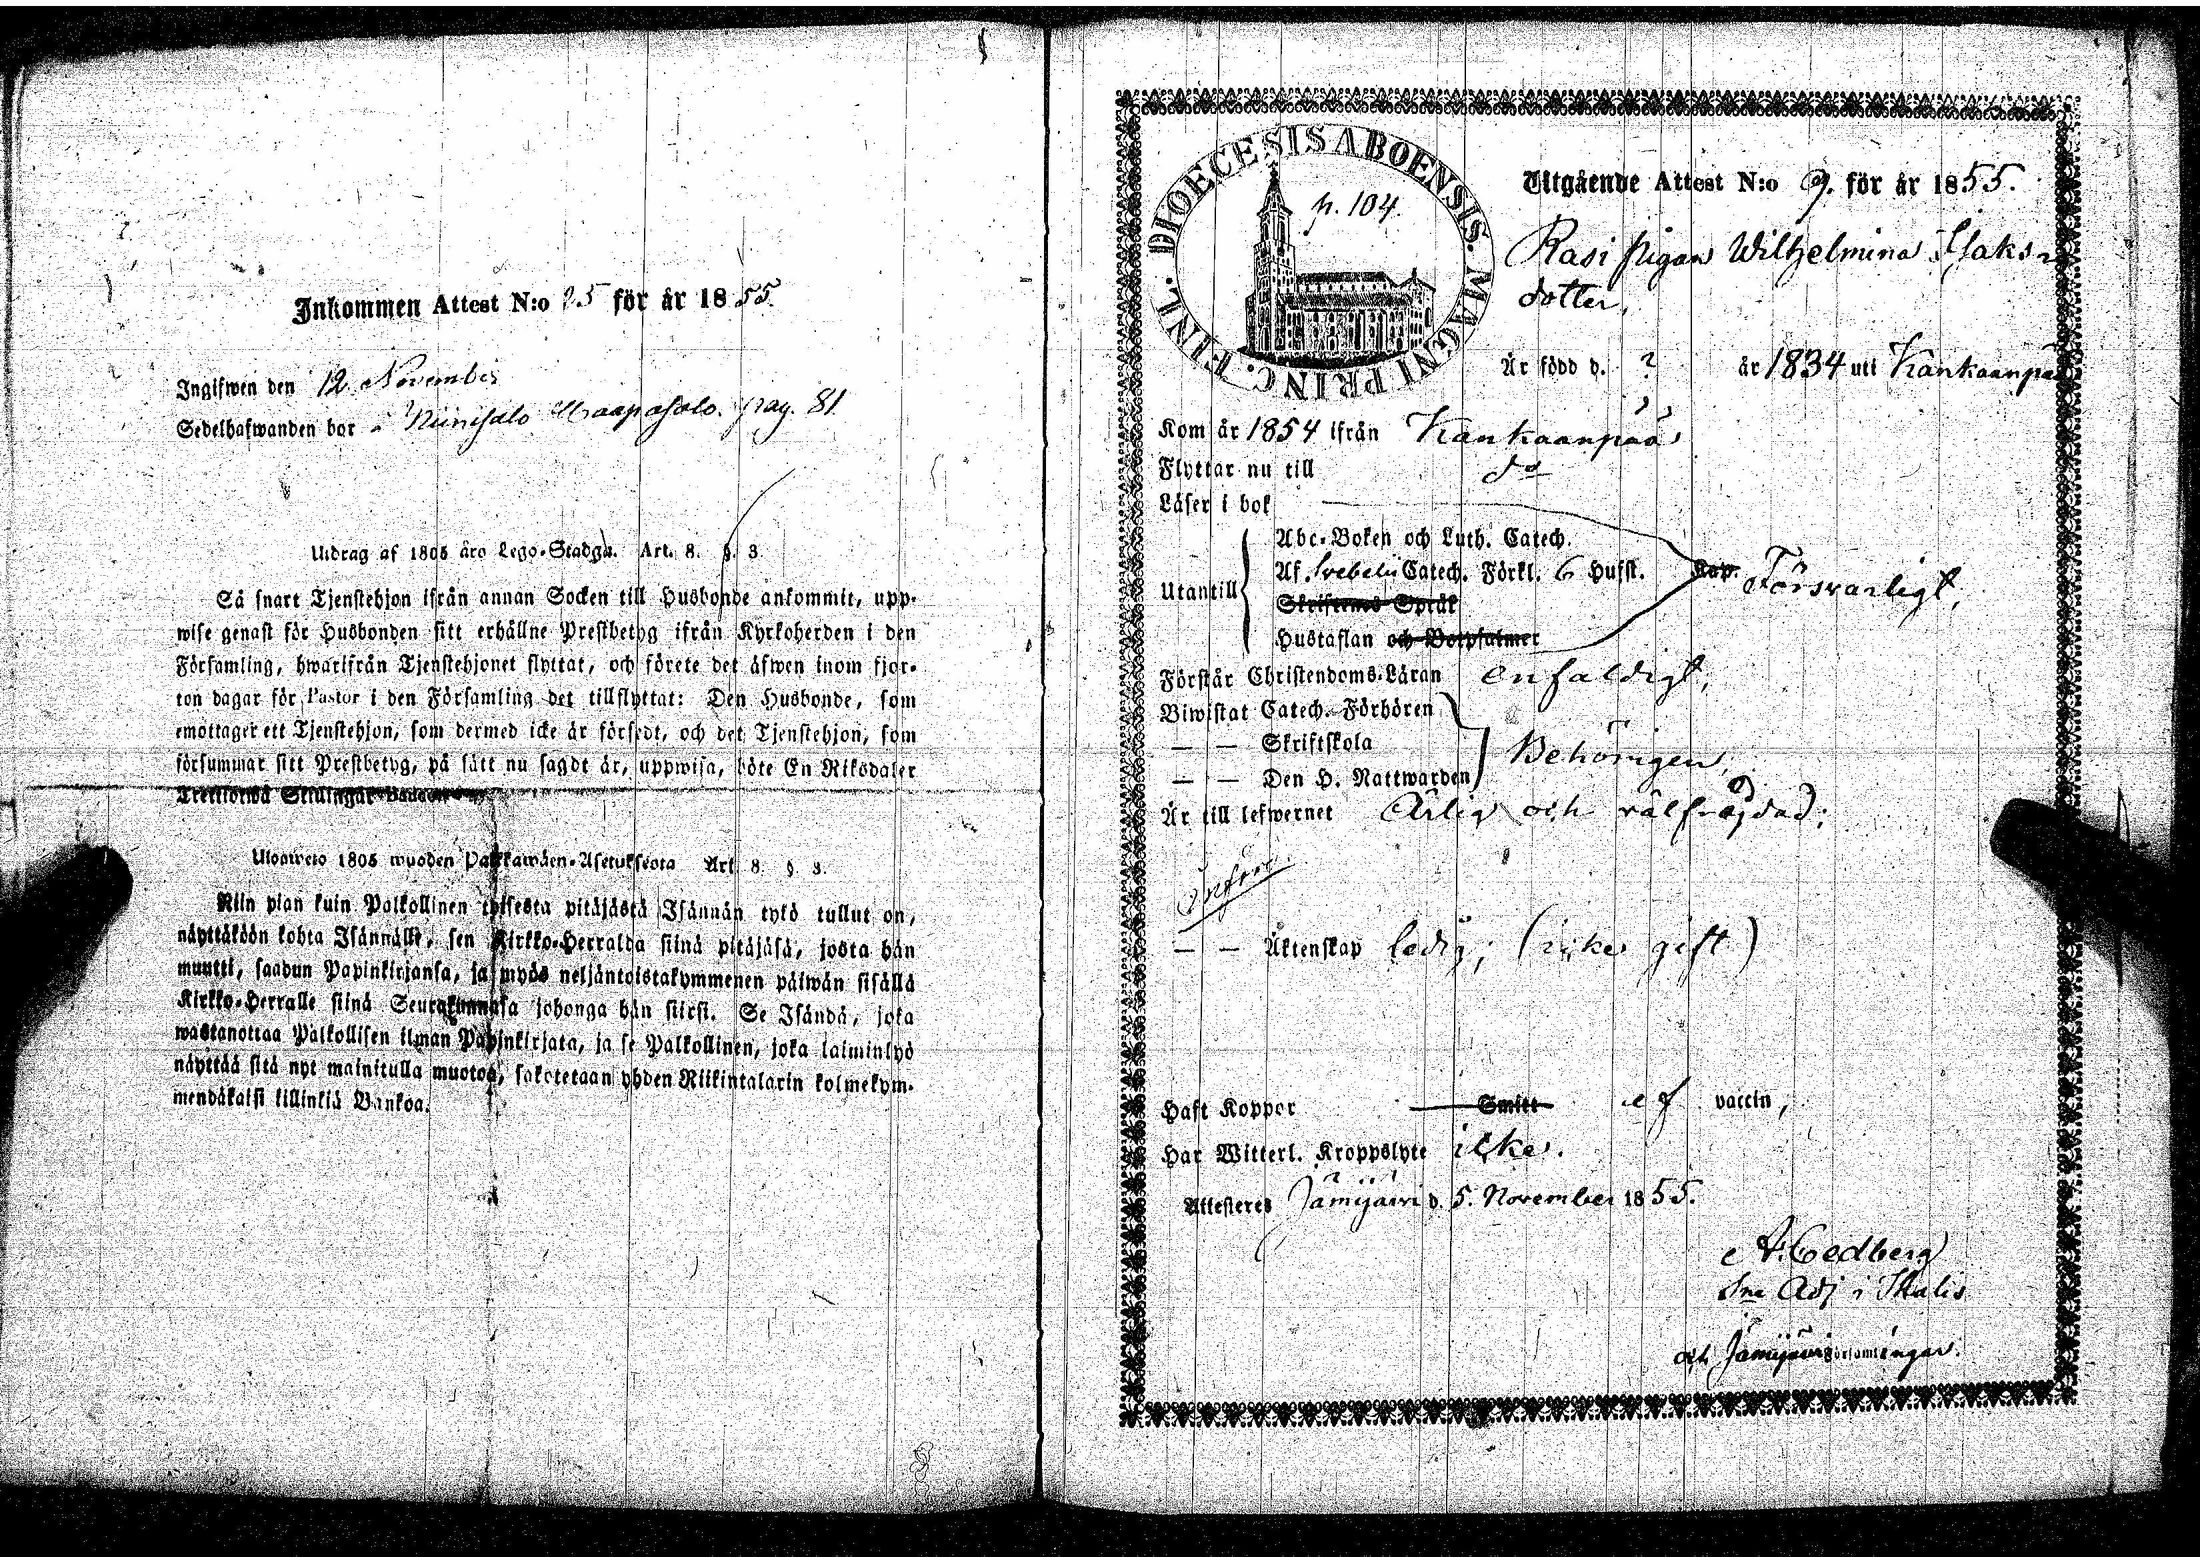 Inkommen Attest N:o 25 för år 1855.
Ingifwen den 12 November
Sedelhafwanden bor å Niinisalo Haapasalo. pag. 81
Utdrag af 1805 års Lego-Stadga. Art. 8. §. 3
Så snart Tjenstehjon ifrån annan Socken till Husbonde ankommit, upp-
wise genast för Husbonden sitt erhållne Prestbetyg ifrån Kyrkoherden i den
Församling, hwarifrån Tjenstehjonet flyttat, och förete det äfwen inom fjor-
ton dagar för Pastor i den Församling det tillflyttat: Den Husbonde, som
emottager ett Tjenstehjon, som dermed icke är försedt, och det Tjenstehjon, som
försummar sitt Prestbetyg, på sätt nu sagdt är, uppwisa, böte En Riksdaler
Trettiotwå Skillingar Banco
Ulosweto 1805 wuoden Palkkawäen-Asetuksesta Art. 8. §. 3.
Niin pian kuin Palkollinen toisesta pitäjästä Isännän tykö tullut on,
näyttäköön kohta Isännälle, sen Kirkko-Herralda siinä pitäjäsä, josta hän
muutti, saadun Papinkirjansa, ja myös neljäntoistakymmenen päiwän sisällä
Kirkko-Herralle siinä Seurakunnasa johonga hän siirsi. Se Isändä, joka
wastanottaa Palkollisen ilman Papinkirjata, ja se Palkollinen, joka laiminlyö
näyttää sitä nyt mainitulla muotoa, sakotetaan yhden Riikintalarin kolmekym-
mendäkaisi killinkiä Bankoa.
DIOECESIS ABOENSIS. MAGNI PRINC. FINL.
p. 104
Utgående Attest N:o 9. för år 1855.
Rasi pigan Wilhelmina Isaks-
dotter,
Är född d. ? år 1834 uti Kankaanpää
Kom år 1854 ifrån Kankaanpää
Flyttar nu till do
Läser i bok
Abc-Boken och Luth. Catech.
Utantill Af. Svebelii Catech. Förkl. 6 Hufst. Cap. Försvarligt,
Skriftenes Språk
Hustaflan och Botpsalmer
Förstår Christendoms-Läran enfaldigt,
Biwistat Catech. Förhören
— — Skriftskola Behörigen,
— — Den H. Nattwarden
Är till lefwernet Ärlig och välfrägdad;
— — Äktenskap ledig; (icke gift)
Haft Koppor Smitt ef vaccin,
Har Witterl. Kroppslyte icke.
Attesteres Jämijärvi d. 5. November 1855.
A. Cedberg
Adj i Ikalis
och Jämijärvi Församlingar.